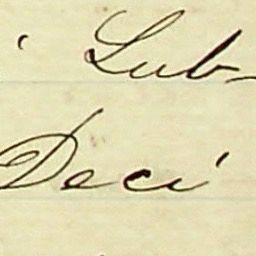 Lub-
Deci